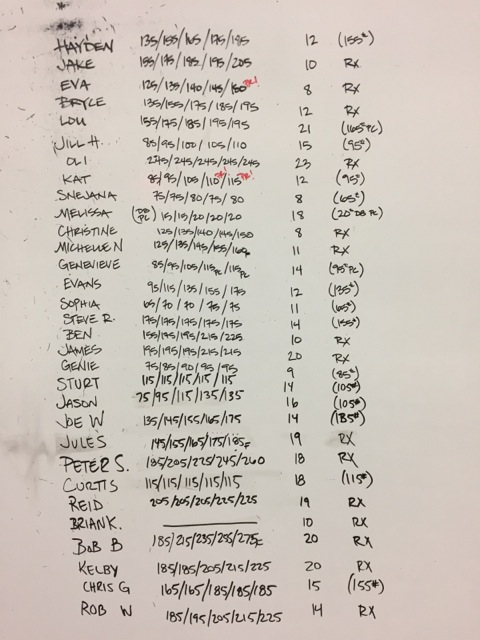 HAYDEN 135/155/165/175/185 12 (155#)
JAKE 155/175/185/195/205 10 RX
EVA 125/135/140/145/150 PR! 8 RX
BRYCE 135/155/175/185/195 12 RX
LOU 155/175/185/195/195 21 (165# PC)
JILL H. 85/95/100/105/110 15 (95#)
OLI 245/245/245/245/245 23 RX
KAT 85/95/105/110 PR!/115 PR! 12 (95#)
SNEJANA 75/75/80/75/80 8 (65#)
MELISSA (DB PC) 15/15/20/20/20 18 (20# DB PC)
CHRISTINE 125/135/140/145/150 8 RX
MICHELLE N 125/135/145/155/160 11 RX
GENEVIEVE 85/95/105/115PC/115PC 14 (95# PC)
EVANS 95/115/135/155/175 12 (135#)
SOPHIA 65/70/70/75/75 11 (65#)
STEVE R. 175/175/175/175/175 14 (155#)
BEN 155/175/195/215/225 10 RX
JAMES 195/195/195/215/215 20 RX
GENIE 75/85/90/95/95 9 (85#)
STURT 115/115/115/115/115 14 (105#)
JASON 75/95/115/135/135 16 (105#)
JOE W 135/145/155/165/175 14 (185#)
JULES 145/155/165/175/185F 19 RX
PETER S. 185/205/225/245/260 18 RX
CURTIS 115/115/115/115/115 18 (115#)
REID 205/205/205/225/225 19 RX
BRIAN K. 10 RX
BOB B 185/215/235/255/275F 20 RX
KELBY 185/185/205/215/225 20 RX
CHRIS G 165/165/185/185/185 15 (155#)
ROB W 185/195/205/215/225 14 RX